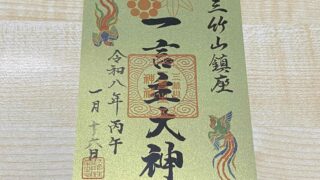 三竹山鎮座
一言主大神
令和八年丙午
一月十六日